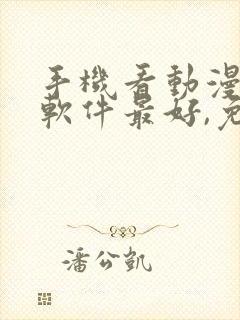 手機看動漫
軟件最好,免
潘公凱